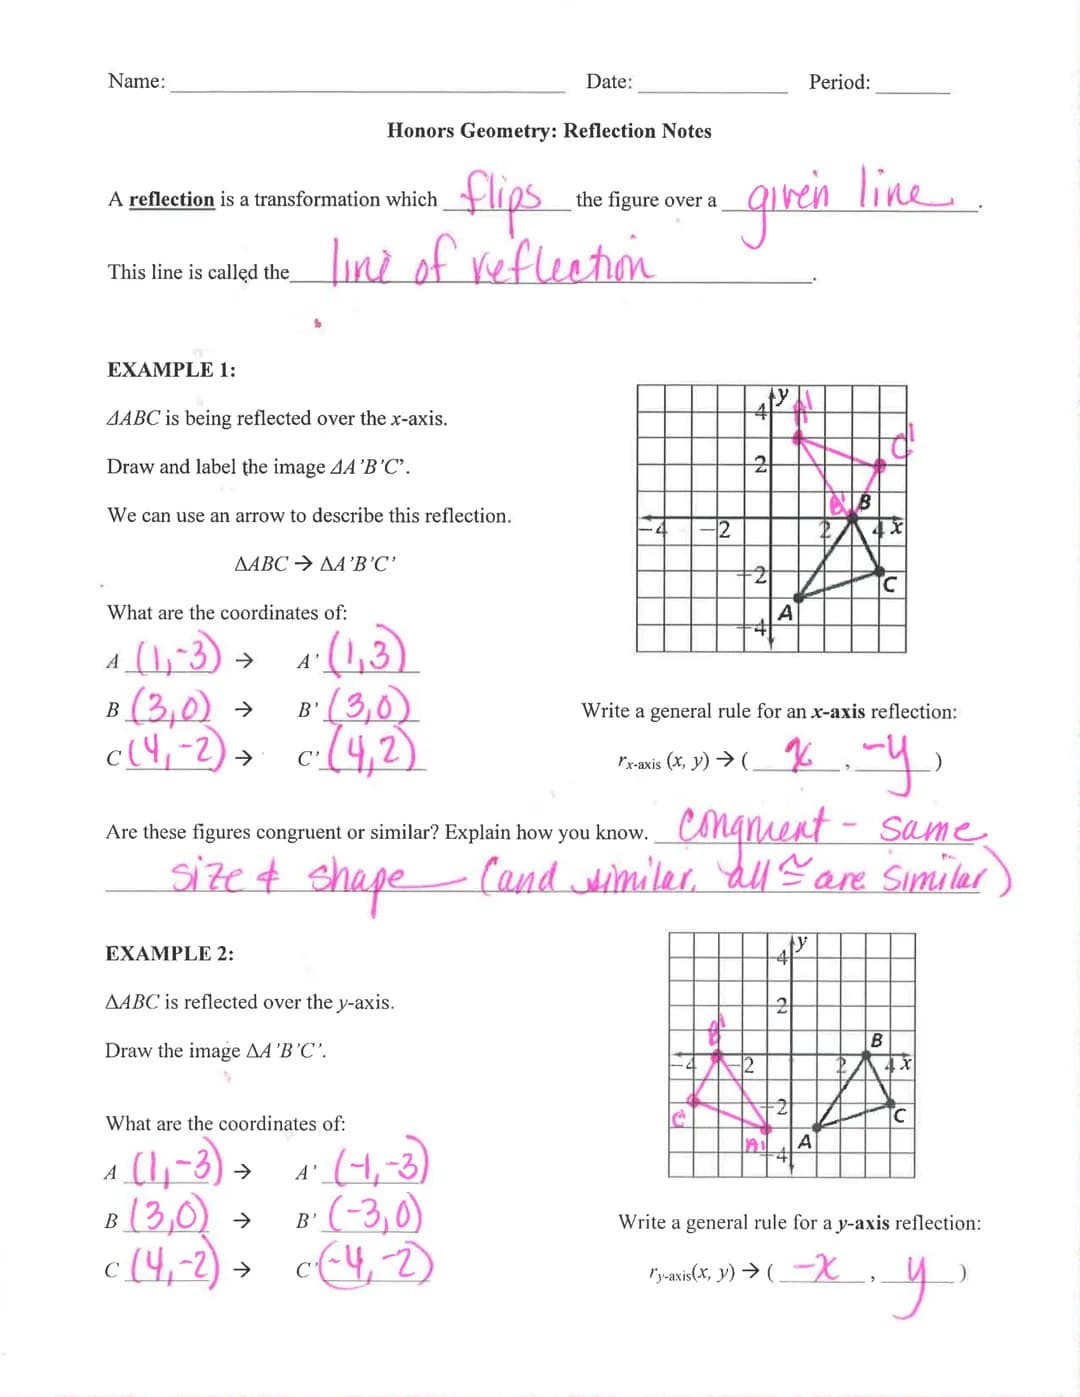 Name: Date: Period:
Honors Geometry: Reflection Notes
A reflection is a transformation which flips the figure over a given line.
This line is called the line of reflection.
EXAMPLE 1:
ΔABC is being reflected over the x-axis.
Draw and label the image ΔA'B'C'.
We can use an arrow to describe this reflection.
ΔABC → ΔA'B'C'
What are the coordinates of:
A (1,-3) → A' (1,3)
B (3,0) → B' (3,0)
C (4,-2) → C' (4,2)
y
4
A'
C'
2
B' B
-4 -2 2 4 x
-2
C
A
-4
Write a general rule for an x-axis reflection:
r x-axis (x, y) → ( x , -y )
Are these figures congruent or similar? Explain how you know. Congruent - same
size & shape - (and similar, all ≅ are similar)
EXAMPLE 2:
ΔABC is reflected over the y-axis.
Draw the image ΔA'B'C'.
What are the coordinates of:
A (1,-3) → A' (-1,-3)
B (3,0) → B' (-3,0)
C (4,-2) → C' (-4,-2)
y
4
2
B' B
-4 -2 2 4 x
-2
C' C
A' A
-4
Write a general rule for a y-axis reflection:
r y-axis (x, y) → ( -x , y )